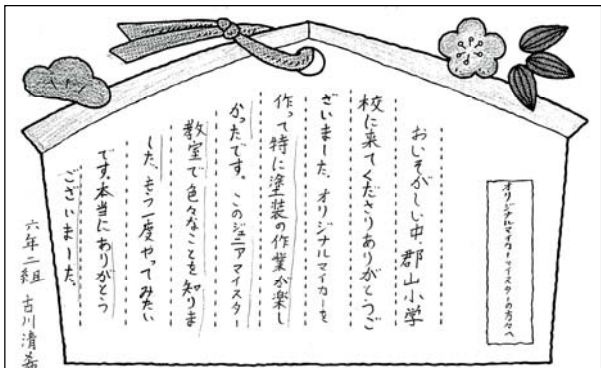 オリジナルマイカーマイスターの方々へ
おいそがしい中、郡山小学
校に来てくださりありがとうご
ざいました。オリジナルマイカーを
作って特に塗装の作業が楽し
かったです。このジュニアマイスター
教室で色々なことを知りま
した。もう一度やってみたい
です。本当にありがとう
ございました。
六年二組 古川清